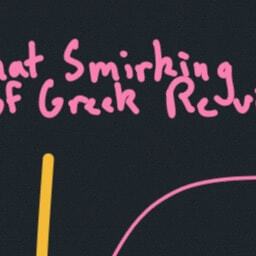 hat Smirking
of Greek Revi